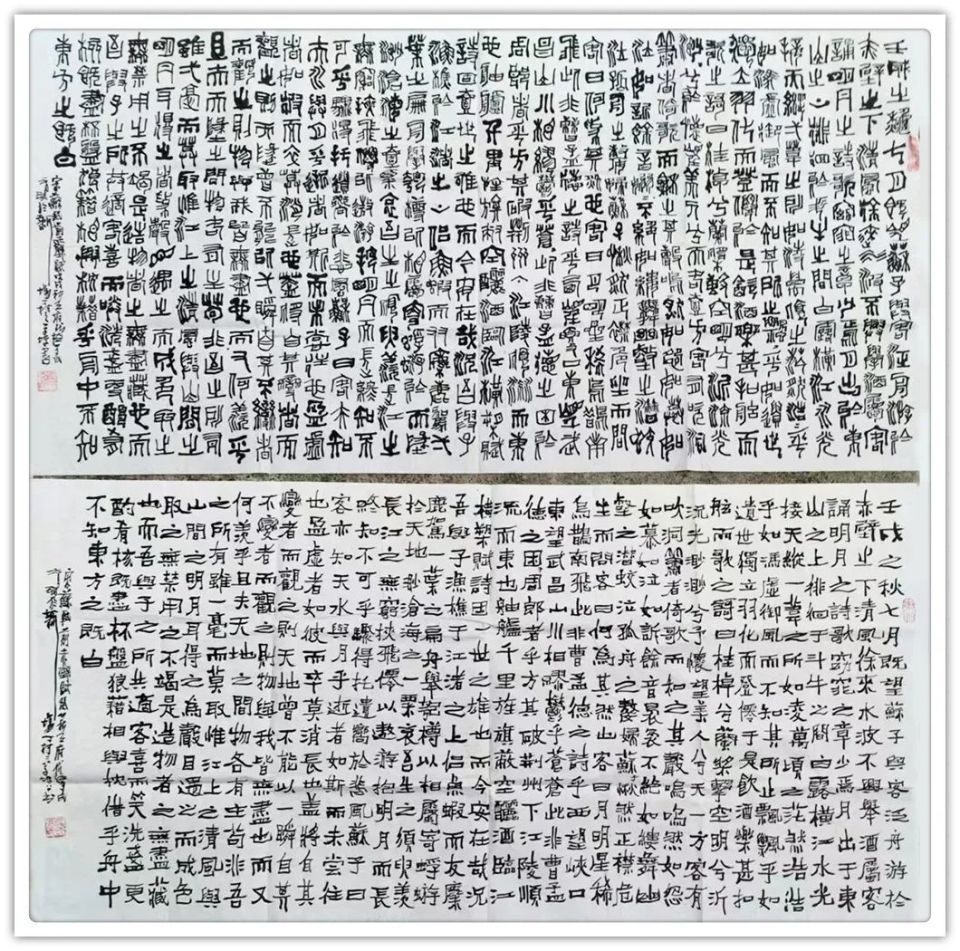 壬戌之秋七月既望蘇子與客泛舟游於
赤壁之下清風徐來水波不興舉酒屬客
誦明月之詩歌窈窕之章少焉月出於東
山之上徘徊於斗牛之間白露橫江水光
接天縱一葦之所如凌萬頃之茫然浩浩乎
如馮虛御風而不知其所止飄飄乎如遺世
獨立羽化而登僊於是飲酒樂甚扣舷而
歌之歌曰桂棹兮蘭槳擊空明兮泝流光
渺渺兮予懷望美人兮天一方客有吹洞
簫者倚歌而和之其聲嗚嗚然如怨如慕如
泣如訴餘音裊裊不絕如縷舞幽壑之潛蛟
泣孤舟之嫠婦蘇子愀然正襟危坐而問
客曰何為其然也客曰月明星稀烏鵲南
飛此非曹孟德之詩乎西望夏口東望武
昌山川相繆鬱乎蒼蒼此非曹孟德之困於
周郎者乎方其破荊州下江陵順流而東
也舳艫千里旌旗蔽空釃酒臨江橫槊賦
詩固一世之雄也而今安在哉況吾與子
漁樵於江渚之上侶魚蝦而友麋鹿駕一
葉之扁舟舉匏樽以相屬寄蜉蝣於天地
渺滄海之一粟哀吾生之須臾羨長江之
無窮挾飛僊以遨游抱明月而長終知不
可乎驟得托遺響於悲風蘇子曰客亦知
夫水與月乎逝者如斯而未嘗往也盈虛
者如彼而卒莫消長也蓋將自其變者而
觀之則天地曾不能以一瞬自其不變者
而觀之則物與我皆無盡也而又何羨乎
且夫天地之間物各有主苟非吾之所有
雖一毫而莫取惟江上之清風與山間之
明月耳得之而為聲目遇之而成色取之
無禁用之不竭是造物者之無盡藏也而
吾與子之所共適客喜而笑洗盞更酌肴
核既盡杯盤狼藉相與枕藉乎舟中不知
東方之既白
壬戌之秋七月既望蘇子與客泛舟游於
赤壁之下清風徐來水波不興舉酒屬客
誦明月之詩歌窈窕之章少焉月出于東
山之上徘徊于斗牛之間白露橫江水光
接天縱一葦之所如凌萬頃之茫然浩浩
乎如馮虛御風而不知其所止飄飄乎如
遺世獨立羽化而登僊于是飲酒樂甚扣
舷而歌之歌曰桂棹兮蘭槳擊空明兮泝
流光渺渺兮予懷望美人兮天一方客有
吹洞簫者倚歌而和之其聲嗚嗚然如怨
如慕如泣如訴餘音裊裊不絕如縷舞幽
壑之潛蛟泣孤舟之嫠婦蘇愀然正襟危
坐而問客曰何為其然也客曰月明星稀
烏鵲南飛此非曹孟德之詩乎西望峽口
東望武昌山川相繆鬱乎蒼蒼此非曹孟
德之困周郎者乎方其破荊州下江陵順
流而東也舳艫千里旌旗蔽空釃酒臨江
橫槊賦詩固一世之雄也而今安在哉況
吾與子漁樵于江渚之上侶魚蝦而友麋
鹿駕一葉之扁舟舉匏樽以相屬寄蜉蝣
於天地渺滄海之一粟哀吾生之須臾羨
長江之無窮挾飛僊以遨游抱明月而長
終知不可乎驟得托遺響於悲風蘇子曰
客亦知夫水與月乎逝者如斯而未嘗往
也盈虛者如彼而卒莫消長也蓋將自其
變者而觀之則天地曾不能以一瞬自其
不變者而觀之則物與我皆無盡也而又
何羨乎且夫天地之間物各有主苟非吾
之所有雖一毫而莫取惟江上之清風與
山間之明月耳得之為聲目遇之而成色
取之無禁用之不竭是造物者之無盡藏
也而吾與子之所共適客喜而笑洗盞更
酌肴核既盡杯盤狼藉相與枕藉乎舟中
不知東方之既白